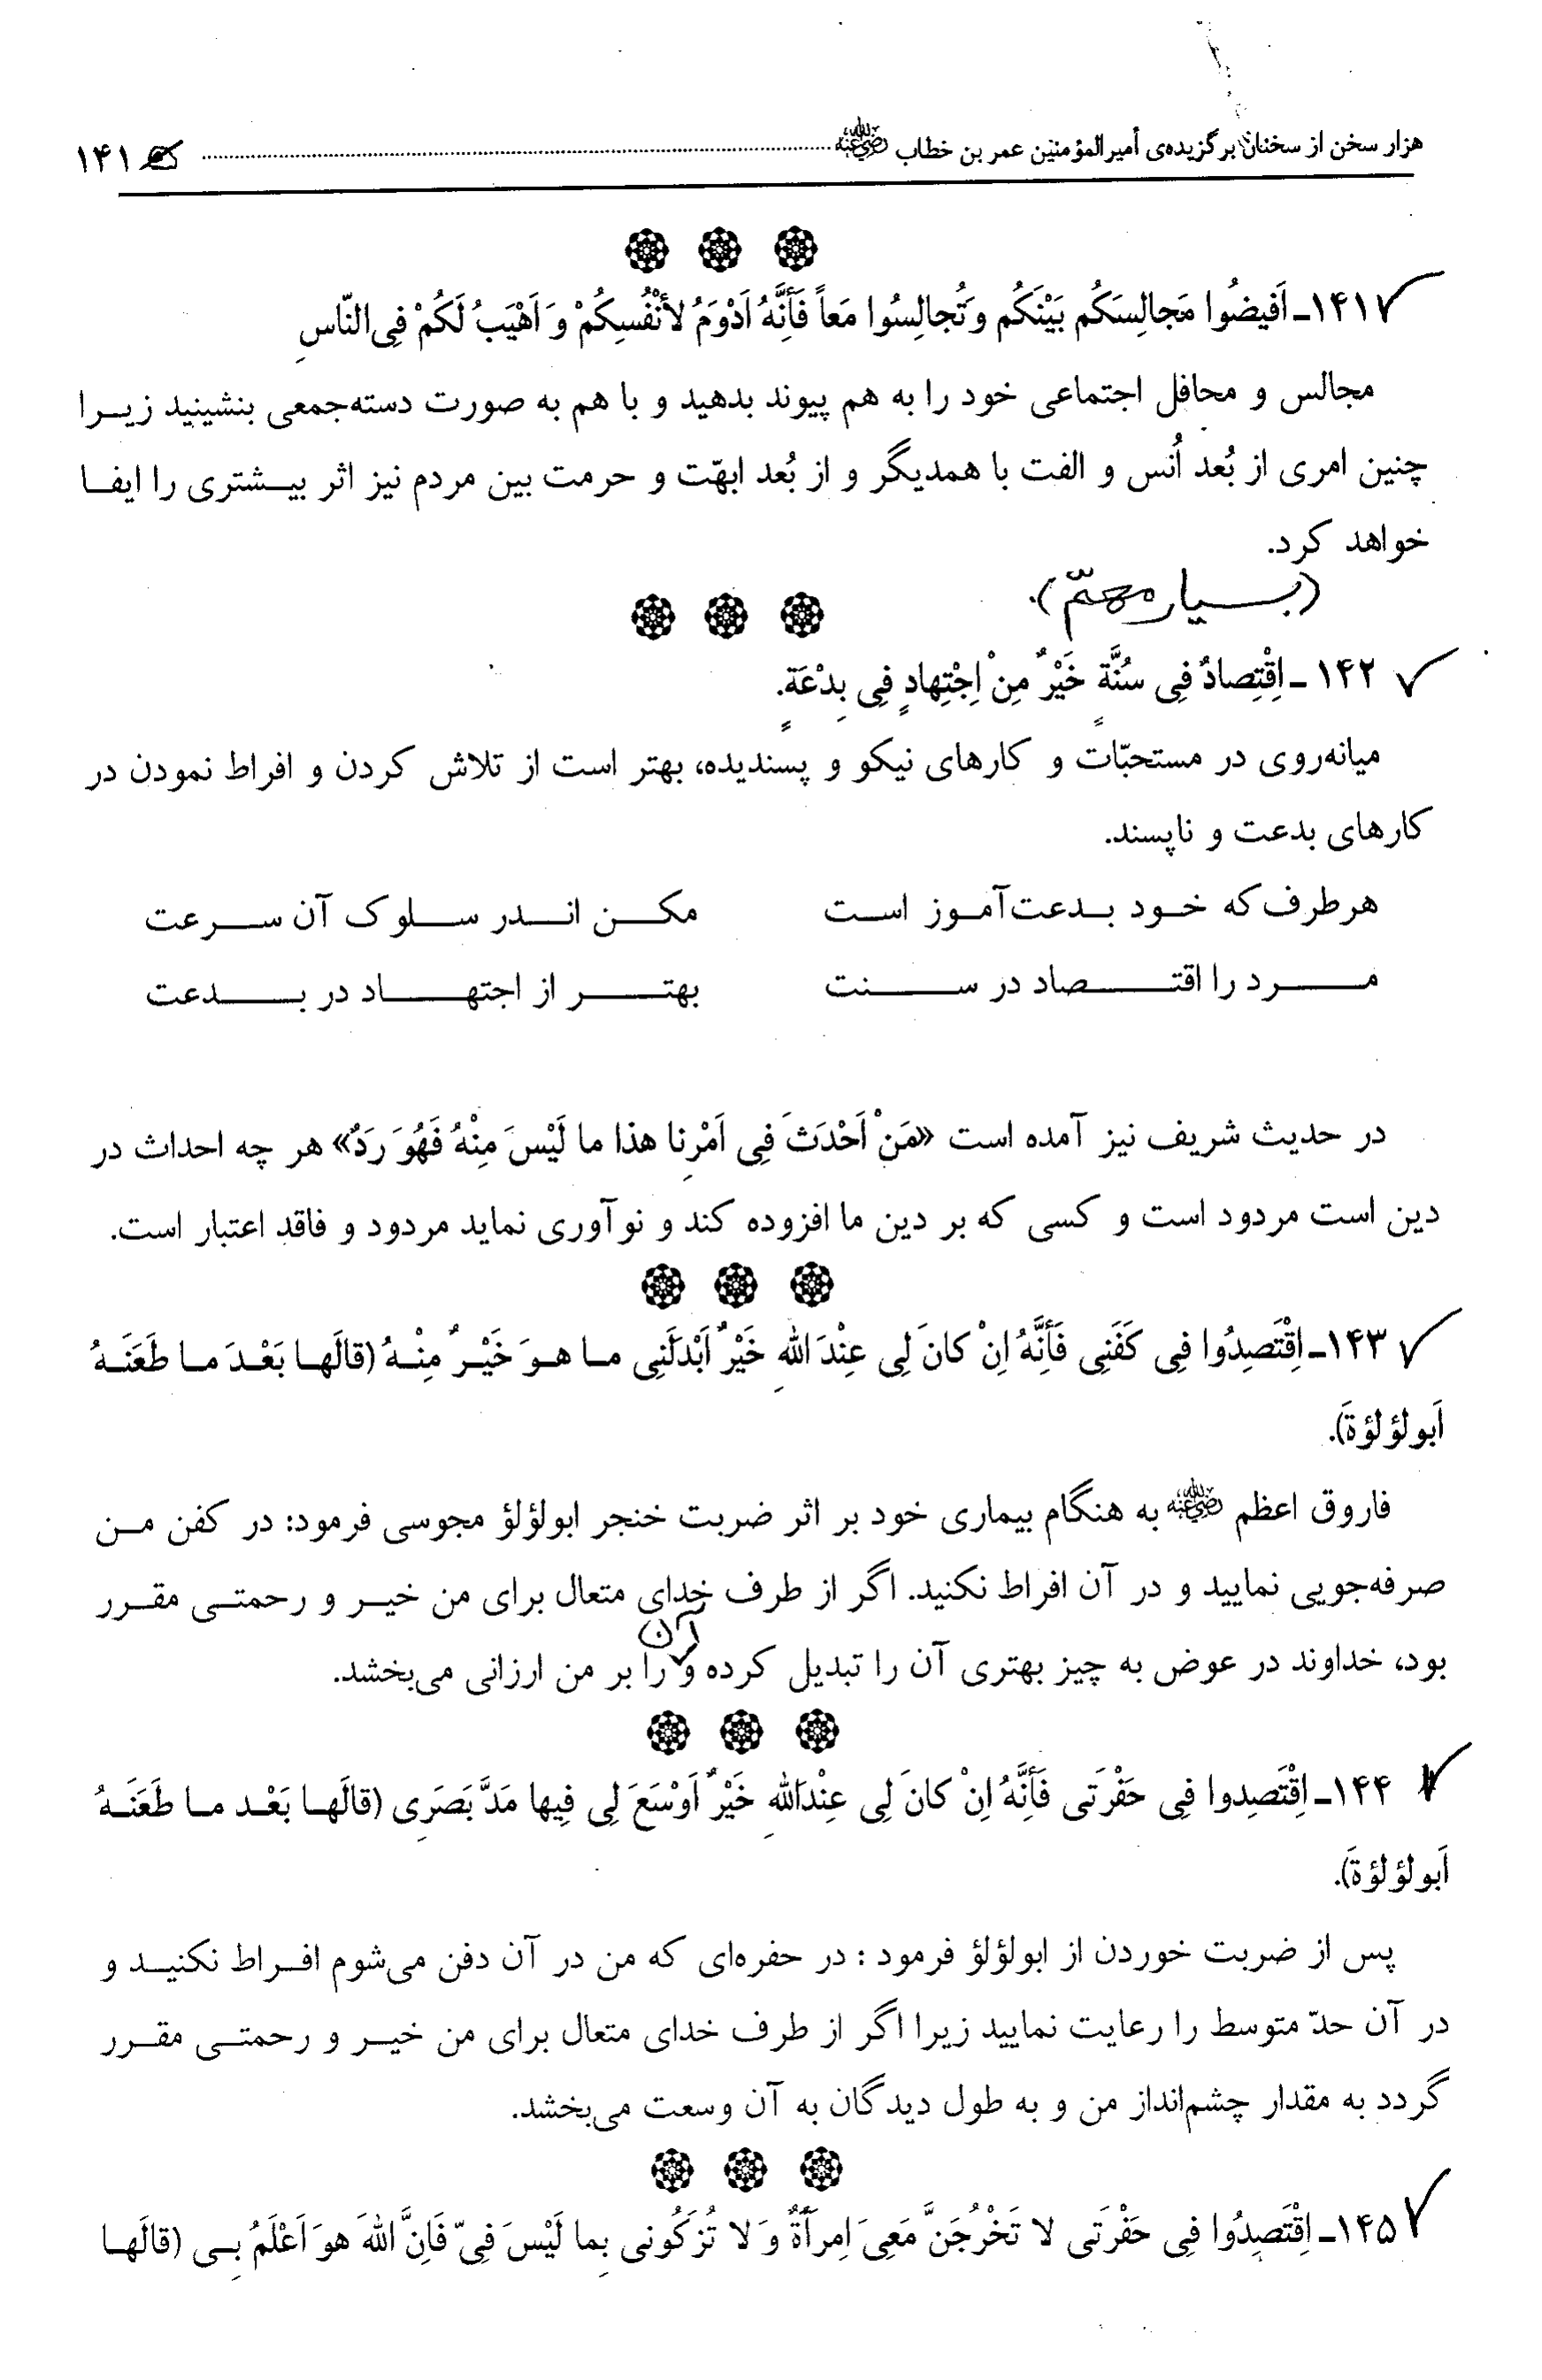 هزار سخن از سخنان برگزیده‌ی أمیرالمؤمنین عمر بن خطاب رضی الله عنه ........ ۱۴۱
۱۴۱ـ اَفیضُوا مَجالِسَکُم بَیْنَکُم وَتُجالِسُوا مَعاً فَأنَّهُ اَدْوَمُ لأنْفُسِکُمْ وَ اَهْیَبُ لَکُمْ فِی‌النّاسِ
مجالس و محافل اجتماعی خود را به هم پیوند بدهید و با هم به صورت دسته‌جمعی بنشینید زیرا
چنین امری از بُعد اُنس و الفت با همدیگر و از بُعد ابهّت و حرمت بین مردم نیز اثر بیشتری را ایفا
خواهد کرد.
(بسیار مهمّ).
۱۴۲ ـ اِقْتِصادٌ فِی سُنَّةٍ خَیْرٌ مِنْ اِجْتِهادٍ فِی بِدْعَةٍ.
میانه‌روی در مستحبّات و کارهای نیکو و پسندیده، بهتر است از تلاش کردن و افراط نمودن در
کارهای بدعت و ناپسند.
هرطرف که خود بدعت‌آموز است مکن اندر سلوک آن سرعت
مرد را اقتصاد در سنت بهتر از اجتهاد در بدعت
در حدیث شریف نیز آمده است «مَنْ اَحْدَثَ فِی اَمْرِنا هذا ما لَیْسَ مِنْهُ فَهُوَ رَدٌ» هر چه احداث در
دین است مردود است و کسی که بر دین ما افزوده کند و نوآوری نماید مردود و فاقد اعتبار است.
۱۴۳ـ اِقْتَصِدُوا فِی کَفَنِی فَأنَّهُ اِنْ کانَ لِی عِنْدَ اللهِ خَیْرٌ اَبْدَلَنِی ما هوَ خَیْرٌ مِنْهُ (قالَها بَعْدَ ما طَعَنَهُ
اَبولؤلؤةَ).
فاروق اعظم رضی الله عنه به هنگام بیماری خود بر اثر ضربت خنجر ابولؤلؤ مجوسی فرمود: در کفن من
صرفه‌جویی نمایید و در آن افراط نکنید. اگر از طرف خدای متعال برای من خیر و رحمتی مقرر
بود، خداوند در عوض به چیز بهتری آن را تبدیل کرده و آن را بر من ارزانی می‌بخشد.
۱۴۴ـ اِقْتَصِدوا فِی حَفْرَتی فَأنَّهُ اِنْ کانَ لِی عِنْدَاللهِ خَیْرٌ اَوْسَعَ لِی فِیها مَدَّ بَصَرِی (قالَها بَعْد ما طَعَنَهُ
اَبولؤلؤةَ).
پس از ضربت خوردن از ابولؤلؤ فرمود : در حفره‌ای که من در آن دفن می‌شوم افراط نکنید و
در آن حدّ متوسط را رعایت نمایید زیرا اگر از طرف خدای متعال برای من خیر و رحمتی مقرر
گردد به مقدار چشم‌انداز من و به طول دیدگان به آن وسعت می‌بخشد.
۱۴۵ـ اِقْتَصِدُوا فِی حَفْرَتی لا تَخْرُجَنَّ مَعِیَ اِمرَأةٌ وَ لا تُزَکُونی بِما لَیْسَ فِیّ فَاِنَّ اللهَ هوَ اَعْلَمُ بی (قالَها